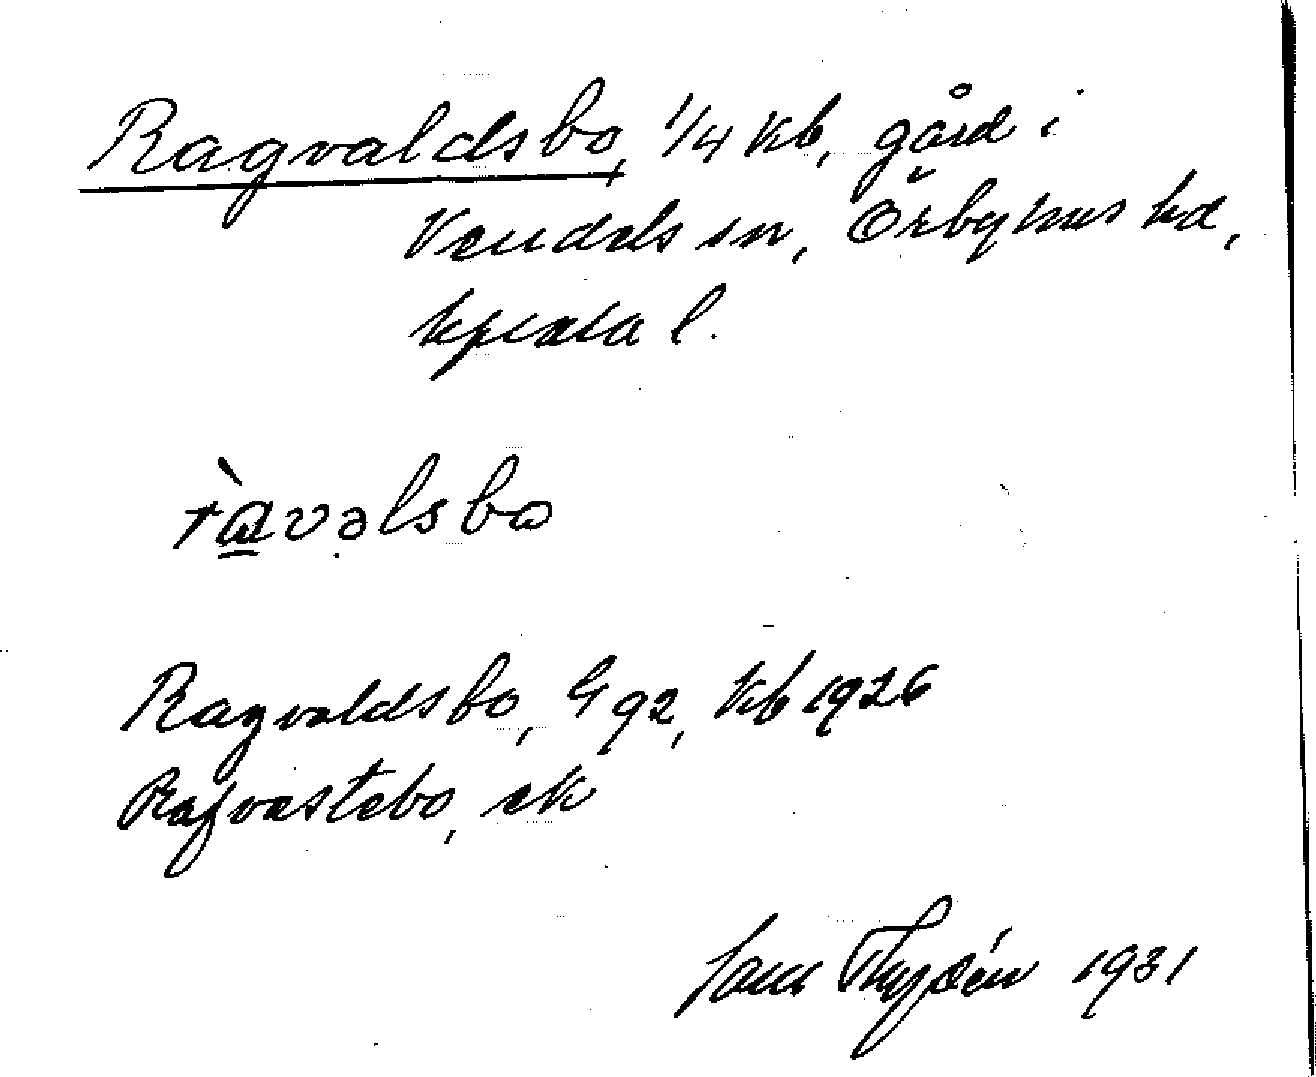 Ragvaldsbo, 1/4 kb, gård i
Vendels sn, Örbyhus hd,
Uppsala l.
ràvəlsbo
Ragvaldsbo, G 92, kb 1926
Rafvastebo, ek
Thydén 1931